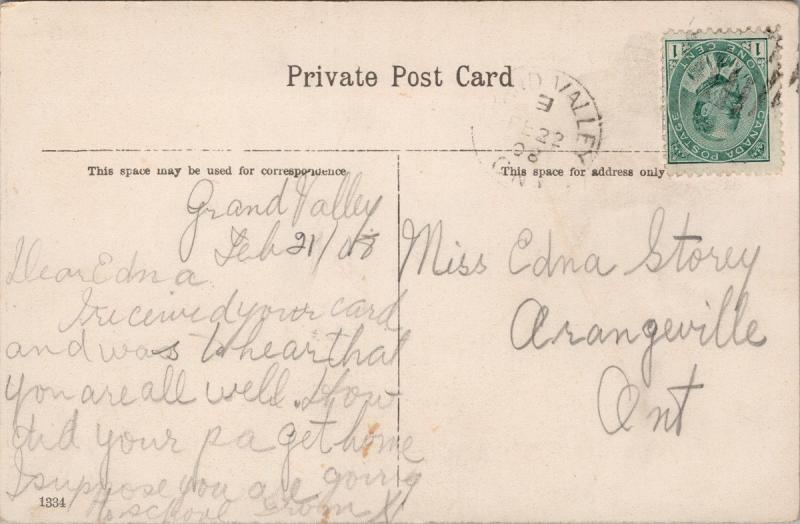 Private Post Card
VALLEY
E
FE 22
08
ONT
1 ONE CENT 1
CANADA POSTAGE
This space may be used for correspondence
This space for address only
Grand Valley
Feb 21/08
Dear Edna
I received your card
and was to hear that
you are all well. How
did your pa get home
I suppose you are going
to school
Miss Edna Storey
Orangeville
Ont
1334